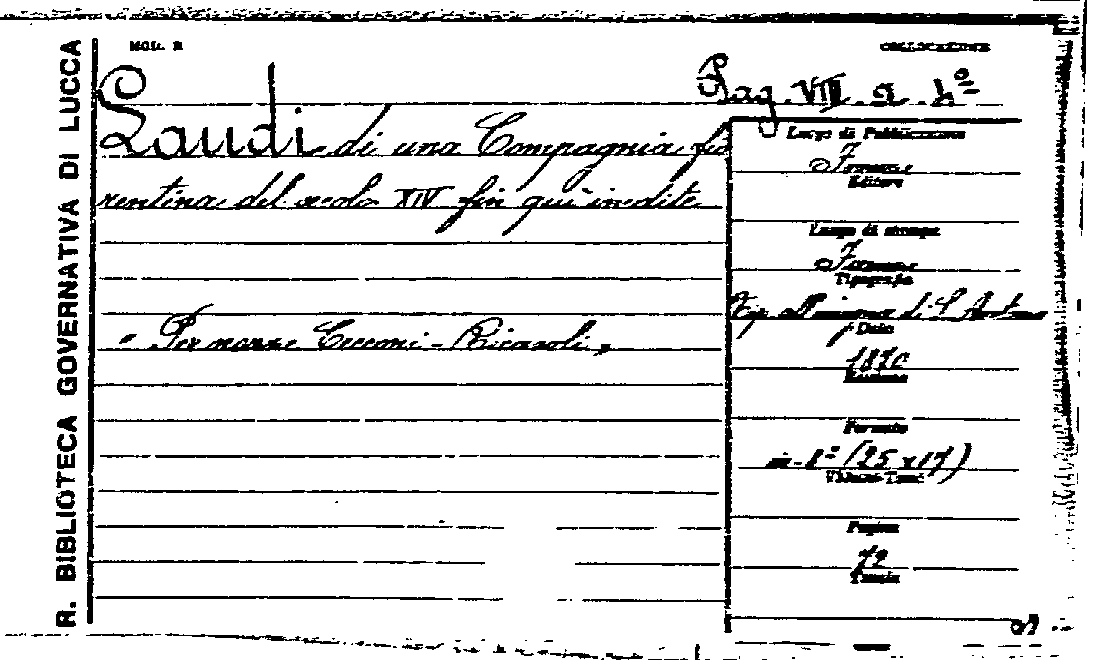 R. BIBLIOTECA GOVERNATIVA DI LUCCA
MOD. R
COLLOCAZIONE
Pag. VIII. a. 4º
Laudi di una Compagnia fio
rentina del secolo XIV fin qui inedite
" Per nozze - Ricasoli "
Luogo di Pubblicazione
Firenze
Editore
Luogo di stampa
Firenze
Tipografia
Tip. all'insegna di S. Antonino
Data
1870
Edizione
Formato
in-8º (25 x 17)
Volumi-Tomi
Pagine
Tavole